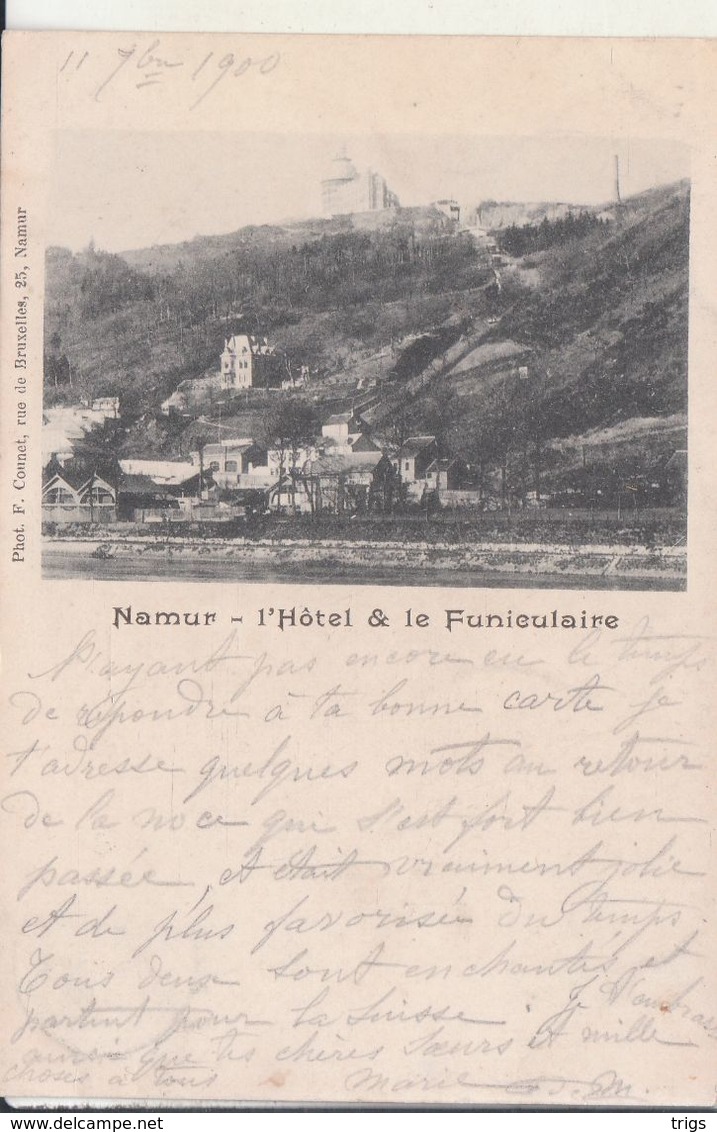 11 7bre 1900
Phot. F. Counet, rue de Bruxelles, 25, Namur
Namur - l'Hôtel & le Funiculaire
N'ayant pas encore eu le temps
de répondre à ta bonne carte je
t'adresse quelques mots au retour
de la noce qui s'est fort bien
passée, et était vraiment jolie
et de plus favorisée du temps
Tous deux sont enchantés et
partent pour la Suisse. Je t'embrasse
ainsi que tes chères sœurs et mille
choses à tous Marie
trigs